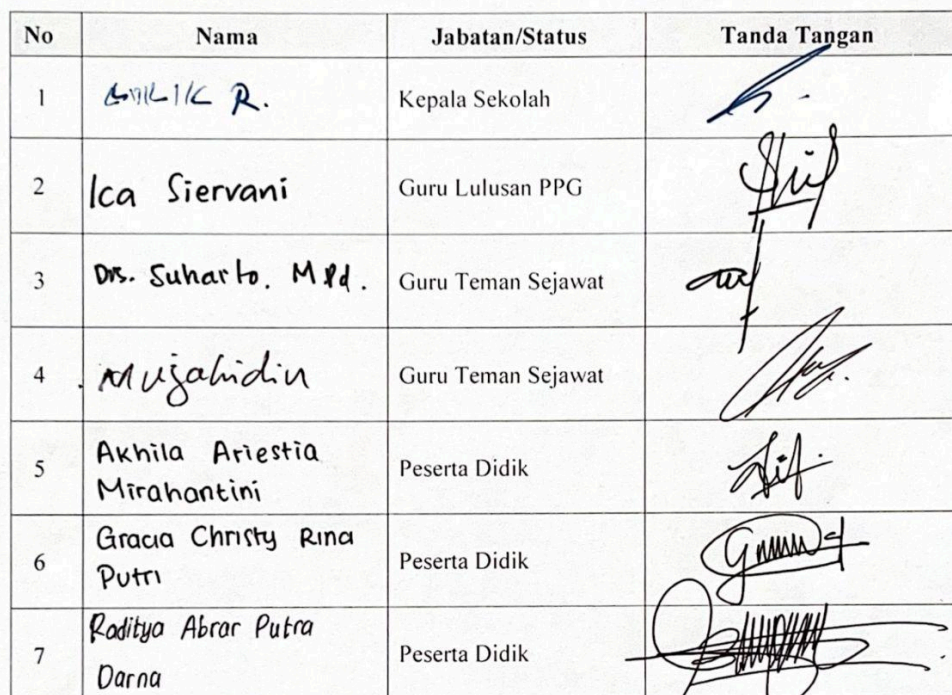 No Nama Jabatan/Status Tanda Tangan
1 R. Kepala Sekolah
2 Ica Siervani Guru Lulusan PPG
3 Drs. Suharto. M Pd. Guru Teman Sejawat
4 Mujahidin Guru Teman Sejawat
5 Akhila Ariestia
Mirahantini Peserta Didik
6 Gracia Christy Rina
Putri Peserta Didik
7 Raditya Abrar Putra
Darna Peserta Didik